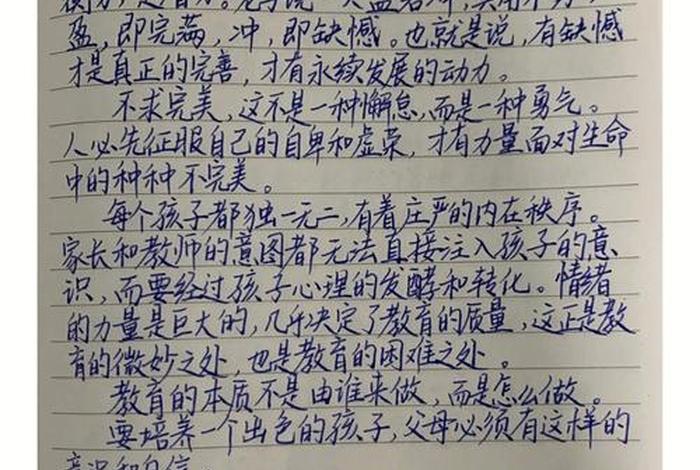 盈，即完满，冲，即缺憾。也就是说，有缺憾
才是真正的完善，才有永续发展的动力。
不求完美，这不是一种懈怠，而是一种勇气。
人必先征服自己的自卑和虚荣，才有力量面对生命
中的种种不完美。
每个孩子都独一无二，有着庄严的内在秩序。
家长和教师的意图都无法直接注入孩子的意
识，而要经过孩子心理的发酵和转化。情绪
的力量是巨大的，几乎决定了教育的质量，这正是教
育的微妙之处，也是教育的困难之处。
教育的本质不是由谁来做，而是怎么做。
要培养一个出色的孩子，父母必须有这样的